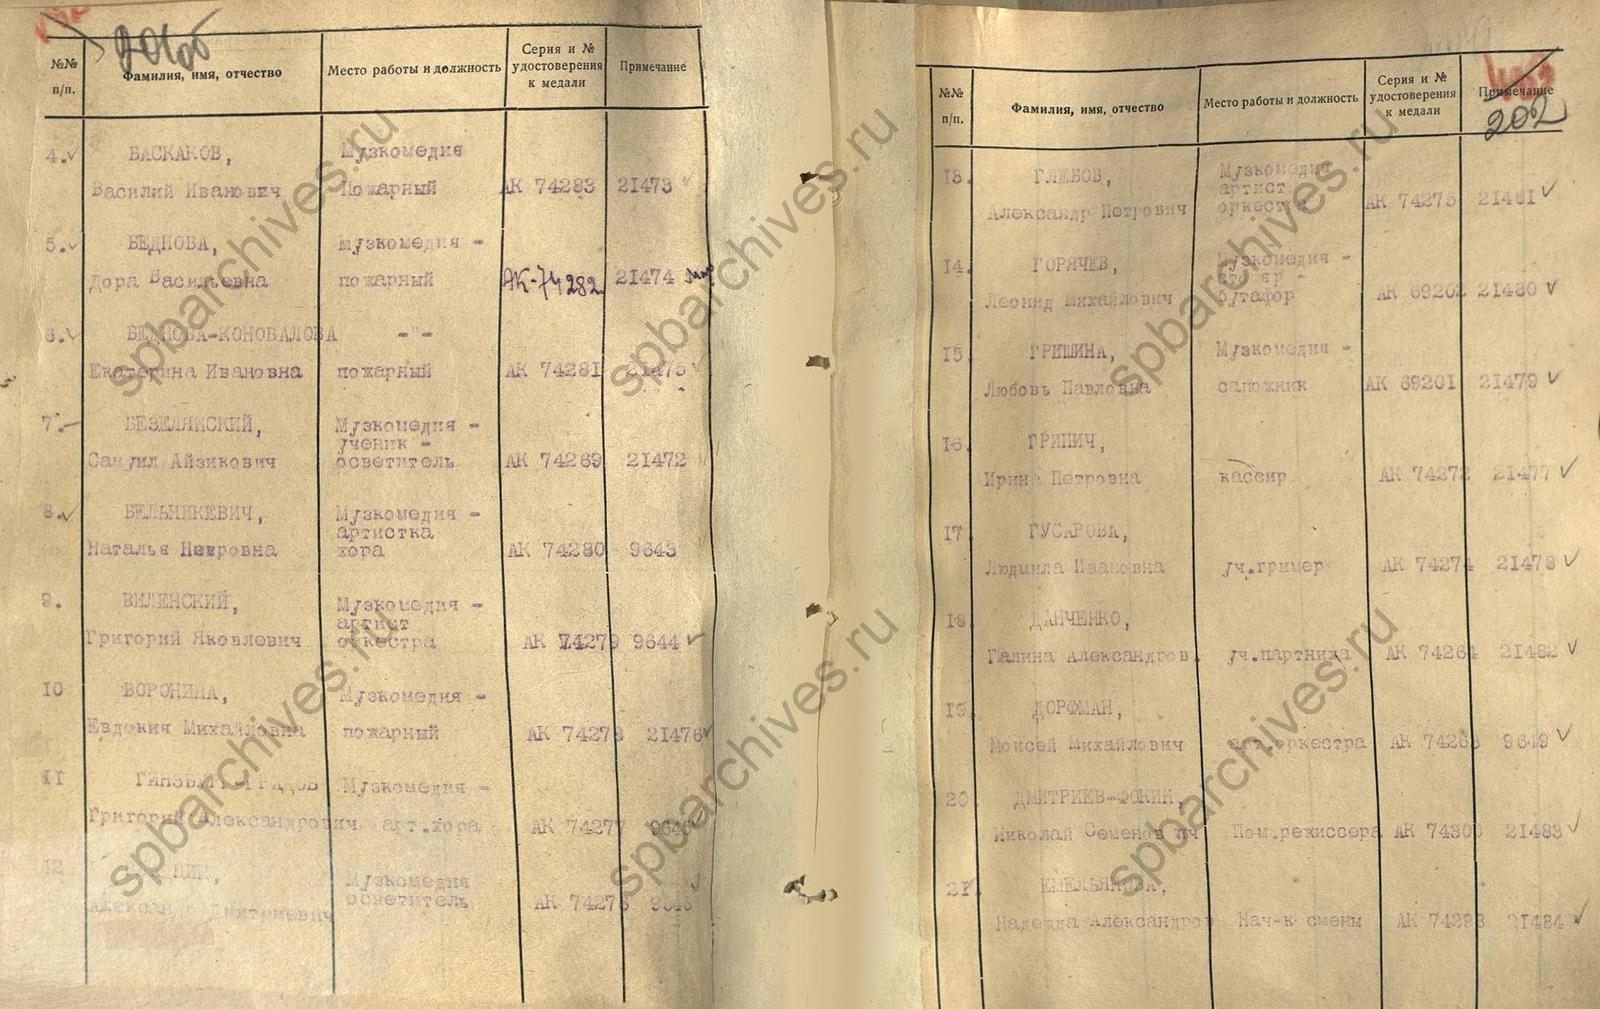 №№ п/п.
Фамилия, имя, отчество
Место работы и должность
Серия и № удостоверения к медали
Примечание
4. БАСКАКОВ, Музкомедия
Василий Иванович Пожарный АК 74283 21473
5. БЕДНОВА, Музкомедия -
Дора Васильевна пожарный АК-74282 21474
6. БЕДНОВА-КОНОВАЛОВА -"-
Екатерина Ивановна пожарный АК 74281 21475
7. БЕЗЕЛЯНСКИЙ, Музкомедия -
ученик -
Самуил Айзикович осветитель АК 74269 21472
8. БЕЛЬНИКЕВИЧ, Музкомедия -
артистка
Наталья Петровна хора АК 74280 9643
9. ВИЛЕНСКИЙ, Музкомедия -
артист
Григорий Яковлевич оркестра АК 74279 9644
10 ВОРОНИНА, Музкомедия -
Евдокия Михайловна пожарный АК 74278 21476
11 Музкомедия -
Григорий Александрович арт.хора АК 74277
12 Музкомедия
Александр Дмитриевич осветитель АК 74276
№№ п/п.
Фамилия, имя, отчество
Место работы и должность
Серия и № удостоверения к медали
Примечание
202
13. ГЛЕБОВ, Музкомедия
артист
Александр Петрович оркестра АК 74275 21481
14. ГОРЯЧЕВ, Музкомедия -
столяр -
Леонид Михайлович бутафор АК 69202 21480
15. ГРИШИНА, Музкомедия -
Любовь Павловна сапожник АК 69201 21479
16. ГРИПИЧ,
Ирина Петровна кассир АК 74272 21477
17. ГУСАРОВА,
Людмила Ивановна уч.гример АК 74274 21478
18. ДАНЧЕНКО,
Галина Александров. уч.партниха АК 74264 21482
19. ДОРФМАН,
Моисей Михайлович арт.оркестра АК 74265 9649
20. ДМИТРИЕВ-ФОКИН,
Николай Семенович Пом.режиссера АК 74300 21483
21. ЕМЕЛЬЯНОВА,
Надежда Александров Нач-к смены АК 74298 21484
spbarchives.ru
spbarchives.ru
spbarchives.ru
spbarchives.ru
spbarchives.ru
spbarchives.ru